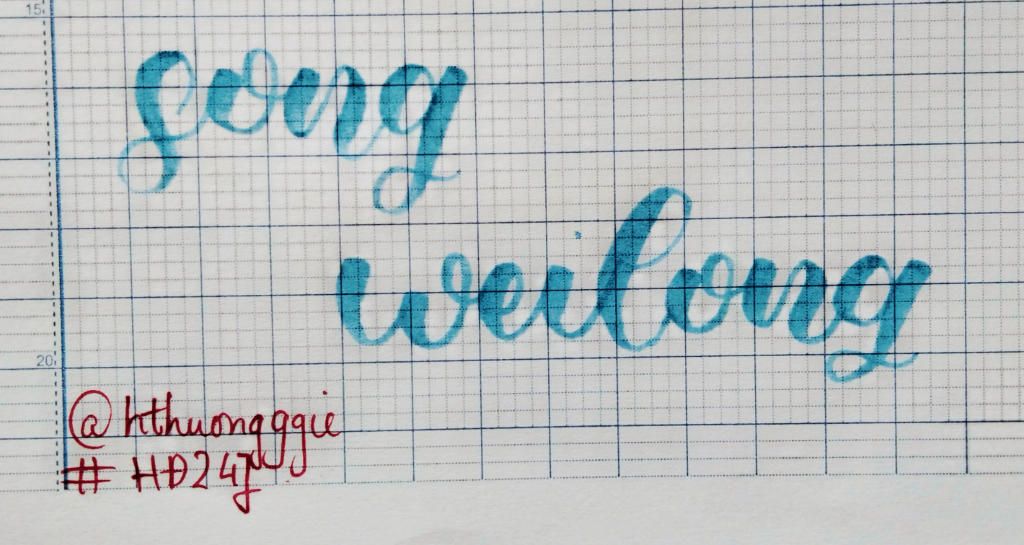 15
song
weilong
20
@hthuongggie
#HĐ24J